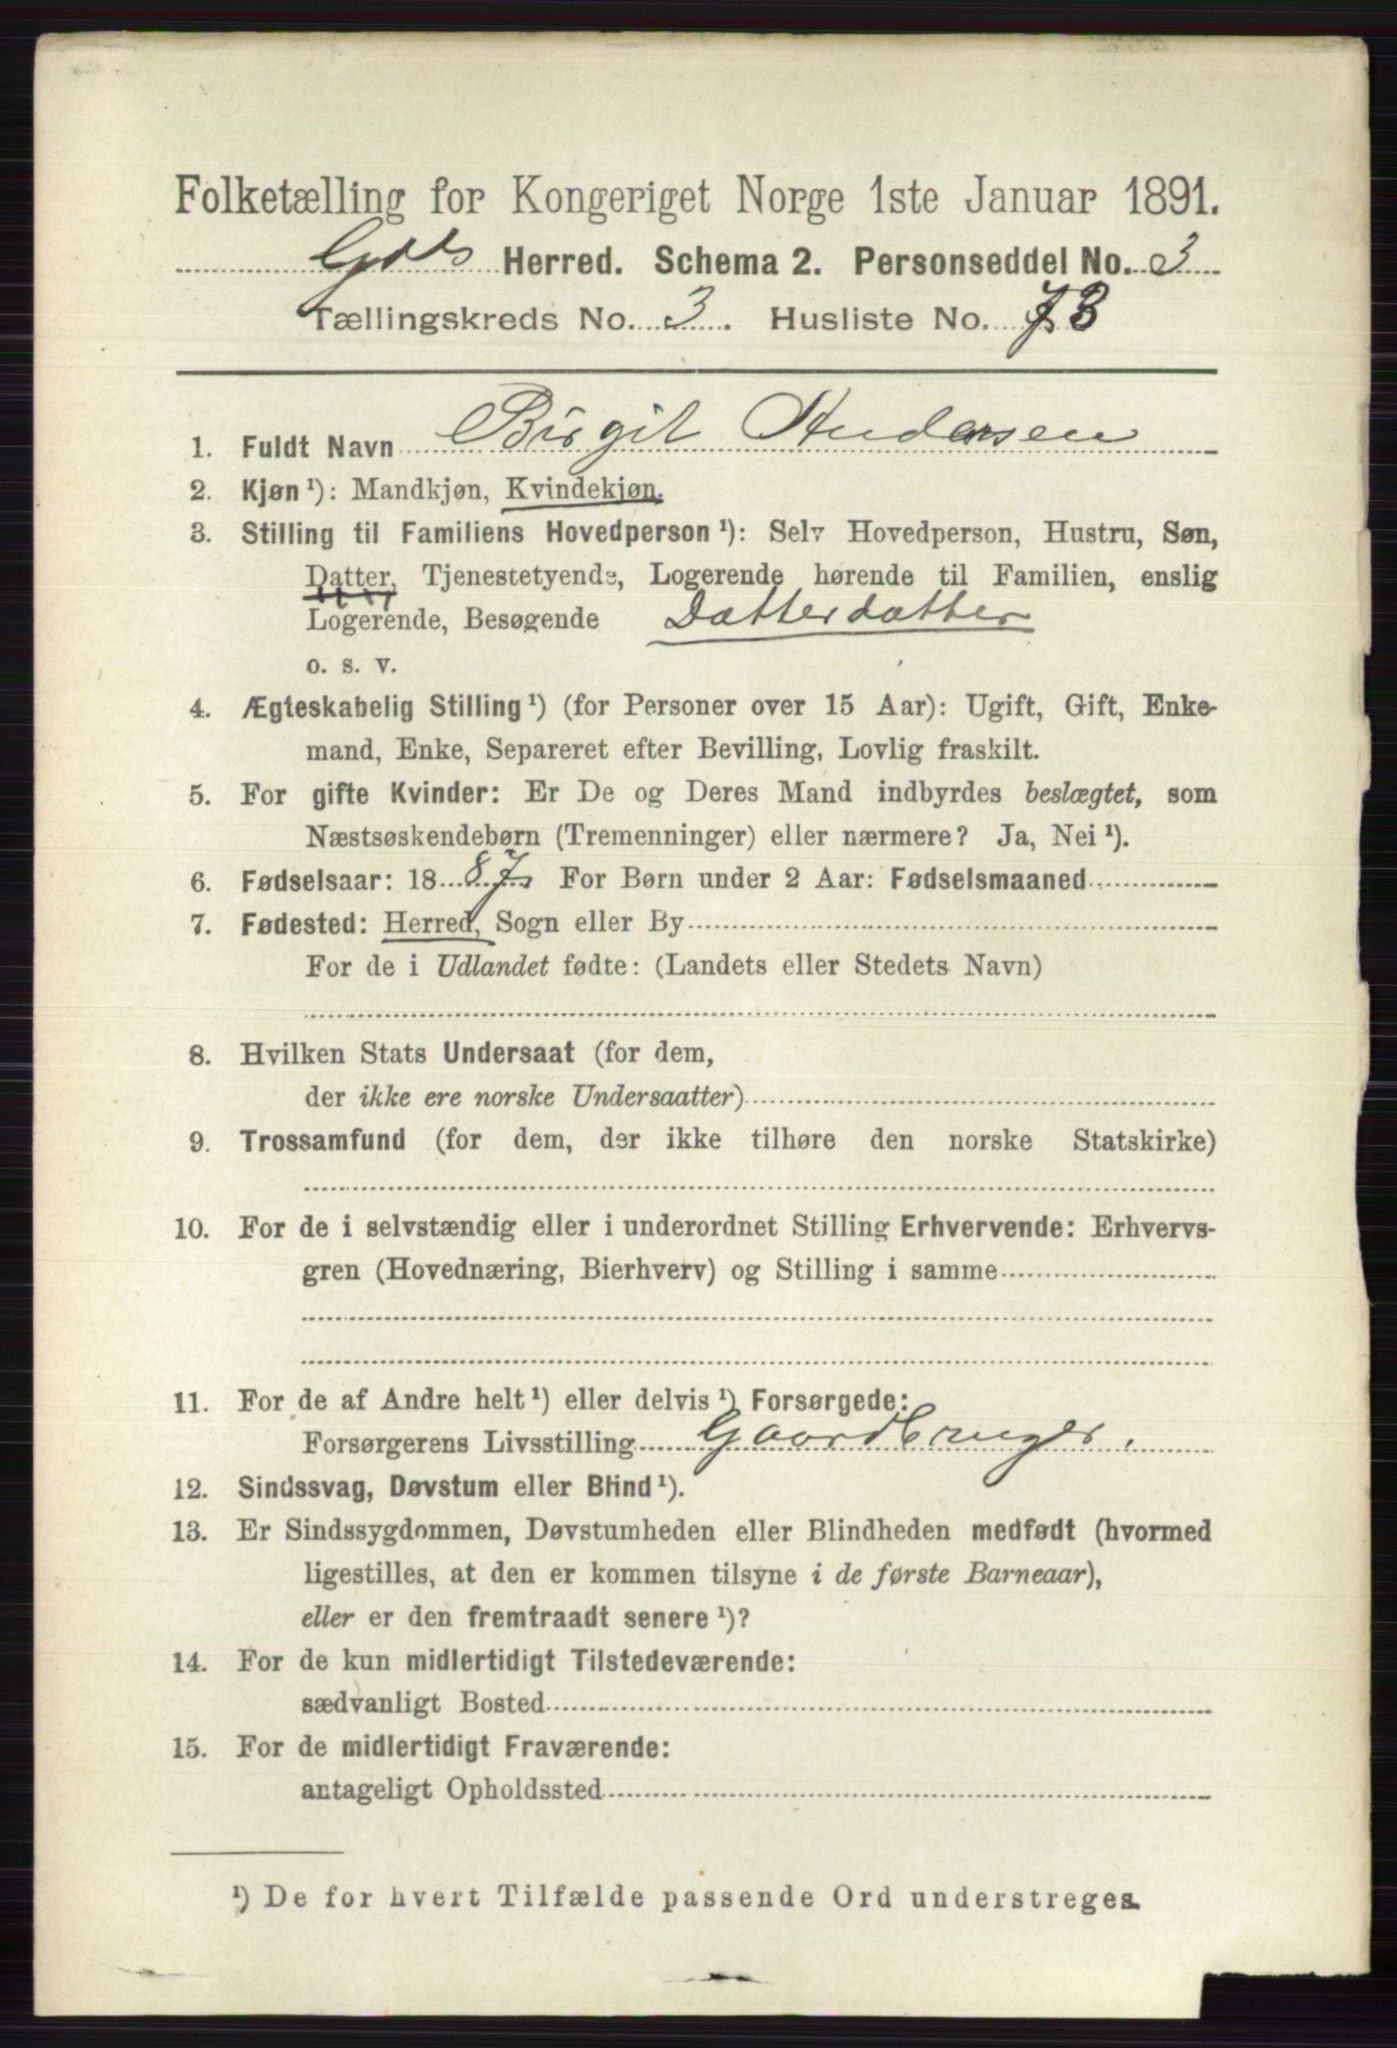 Folketælling for Kongeriget Norge 1ste Januar 1891.
Gols Herred. Schema 2. Personseddel No. 3
Tællingskreds No. 3. Husliste No. 73
1. Fuldt Navn Birgit Andersen
2. Kjøn¹): Mandkjøn, Kvindekjøn.
3. Stilling til Familiens Hovedperson¹): Selv Hovedperson, Hustru, Søn,
Datter, Tjenestetyende, Logerende hørende til Familien, enslig
Logerende, Besøgende Datterdatter
o. s. v.
4. Ægteskabelig Stilling¹) (for Personer over 15 Aar): Ugift, Gift, Enke-
mand, Enke, Separeret efter Bevilling, Lovlig fraskilt.
5. For gifte Kvinder: Er De og Deres Mand indbyrdes beslægtet, som
Næstsøskendebørn (Tremenninger) eller nærmere? Ja, Nei¹).
6. Fødselsaar: 1887 For Børn under 2 Aar: Fødselsmaaned
7. Fødested: Herred, Sogn eller By
For de i Udlandet fødte: (Landets eller Stedets Navn)
8. Hvilken Stats Undersaat (for dem,
der ikke ere norske Undersaatter)
9. Trossamfund (for dem, der ikke tilhøre den norske Statskirke)
10. For de i selvstændig eller i underordnet Stilling Erhvervende: Erhvervs-
gren (Hovednæring, Bierhverv) og Stilling i samme
11. For de af Andre helt¹) eller delvis¹) Forsørgede:
Forsørgerens Livsstilling Gaardbruger.
12. Sindssvag, Døvstum eller Blind¹).
13. Er Sindssygdommen, Døvstumheden eller Blindheden medfødt (hvormed
ligestilles, at den er kommen tilsyne i de første Barneaar),
eller er den fremtraadt senere¹)?
14. For de kun midlertidigt Tilstedeværende:
sædvanligt Bosted
15. For de midlertidigt Fraværende:
antageligt Opholdssted
¹) De for hvert Tilfælde passende Ord understreges.